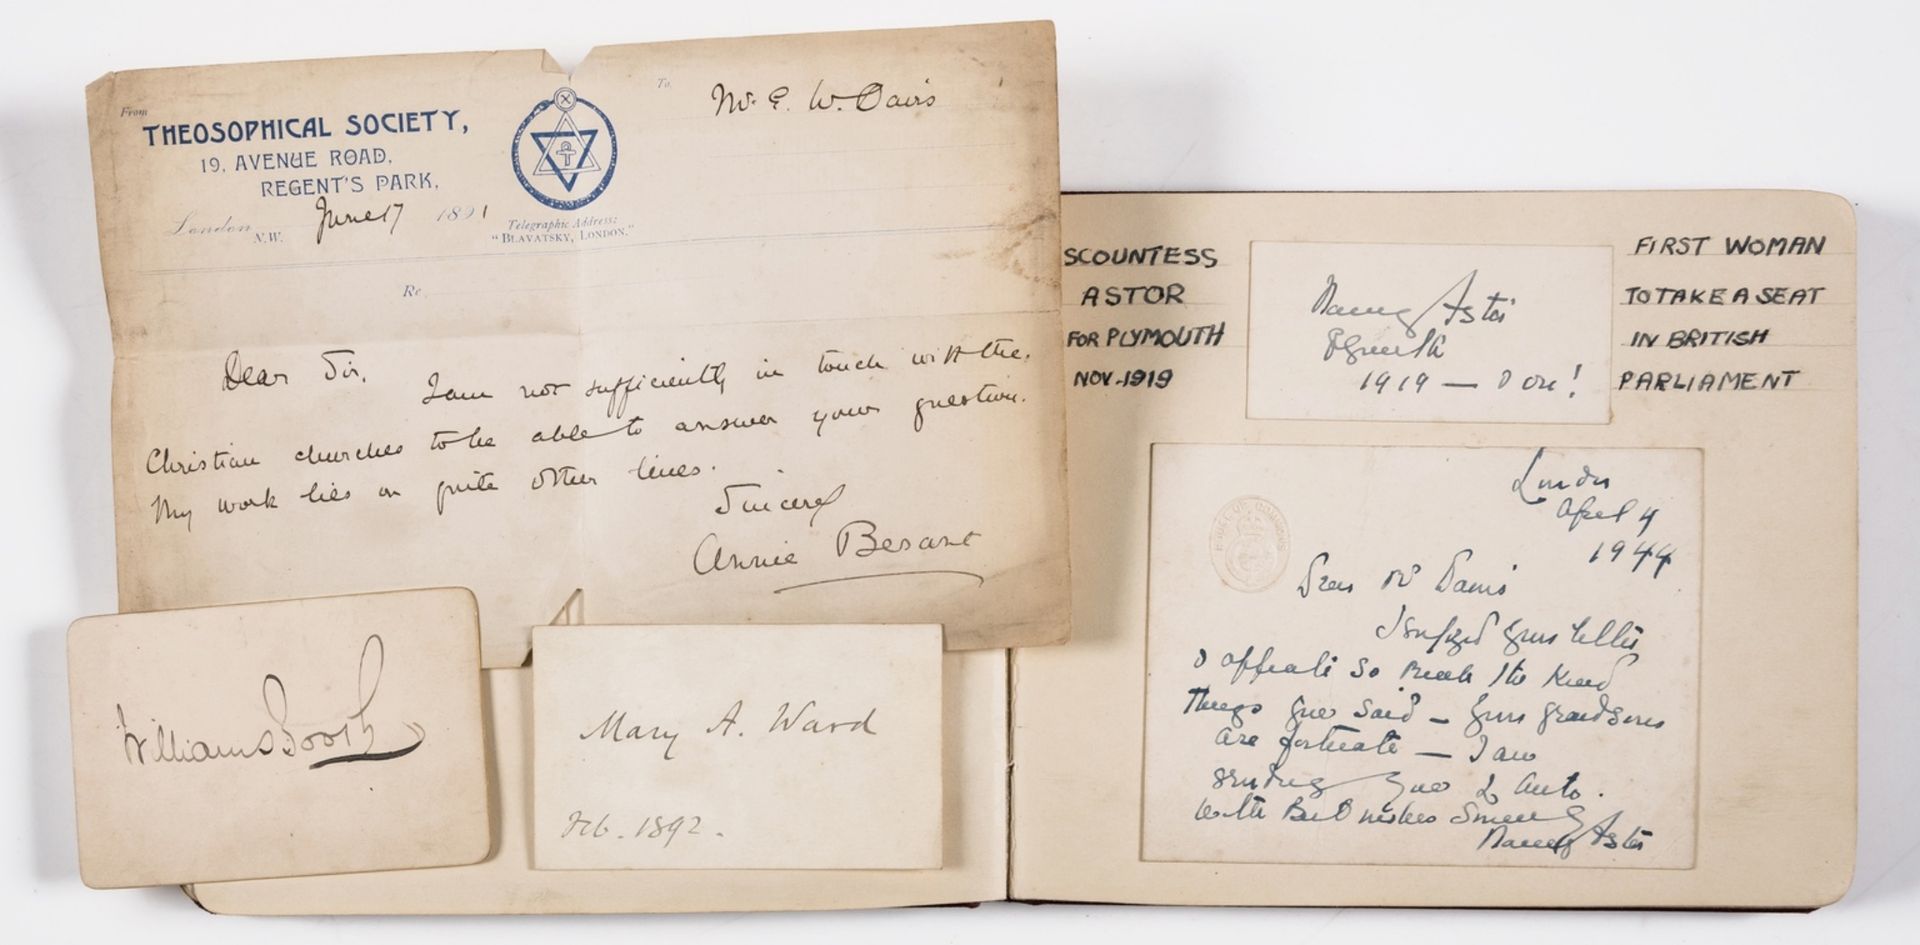 From
THEOSOPHICAL SOCIETY,
19, AVENUE ROAD,
REGENT'S PARK,
London N.W. June 17 1891
Telegraphic Address:
"BLAVATSKY, LONDON."
To Mr. E. W. Davis
Re
Dear Sir,
I am not sufficiently in touch with the
Christian churches to be able to answer your question.
My work lies on quite other lines.
Sincerely
Annie Besant
William Booth
Mary A. Ward
Feb. 1892.
SCOUNTESS
ASTOR
FOR PLYMOUTH
NOV-1919
Nancy Astor
Plymouth
1919 —
FIRST WOMAN
TO TAKE A SEAT
IN BRITISH
PARLIAMENT
HOUSE OF COMMONS
London
April 4
1944
Dear Mr Davis
I enjoyed your letter
& appreciate so much the kind
things you said — your grandsons
are fortunate — I am
sending you 2 auto.
With Best wishes Sincerely
Nancy Astor